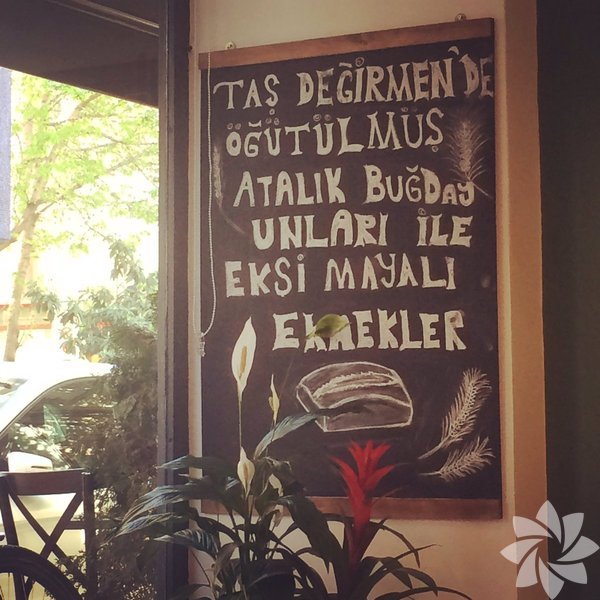 TAŞ DEĞİRMEN'DE
ÖĞÜTÜLMÜŞ
ATALIK BUĞDAY
UNLARI İLE
EKŞİ MAYALI
EKMEKLER